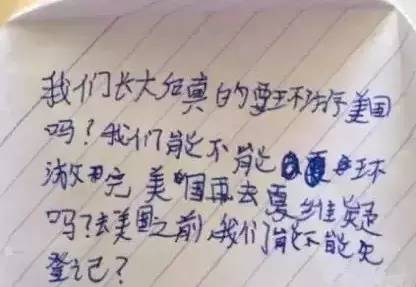 我们长大后真的要环游美国
吗？我们能不能 环
游完美国再去夏维疑
吗？去美国之前，我们能不能先
登记？